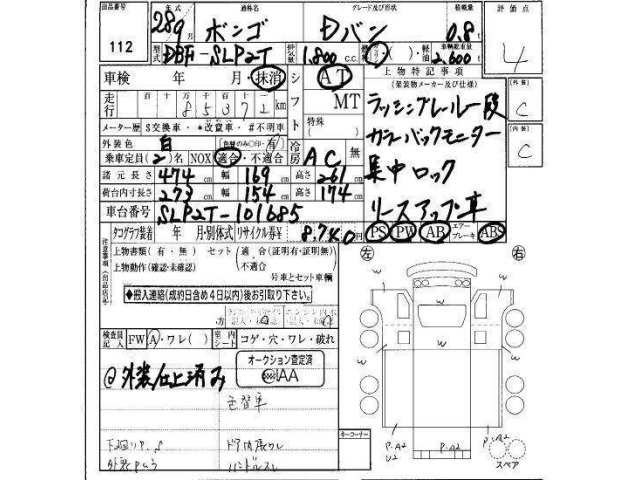 出品番号 年式 通称名 グレード及び形状 積載量 評価点
112 28年9月 ボンゴ Dバン 0.8t 4
型式 DBF-SLP2T 排気量 1,800c.c. ( )・軽油 車輌総重量 2,600t
車検 年 月・抹消 シフト AT 上物特記事項
(架装物メーカー及び仕様) (外装) C
走行 百 十 万 千 百 十 一
85372km MT ラッシングレール一段
メーター歴 $交換車・*改竄車・#不明車 特殊( )
外装色 白 (色替のみ○印・有) 冷房 AC 無 カラーバックモニター (内装) C
乗車定員(2)名 NOX 適合・不適合
諸元長さ 474cm 幅 169cm 高さ 261cm 集中ロック
荷台内寸長さ 273cm 幅 154cm 高さ 174cm
車台番号 SLP2T-101685 リースアップ車
タコグラフ装着 年 月・別体式 リサイクル券¥ 8,740円 PS PW AB エアーブレーキ ABS
注意事項(出品店記入)
上物書類(有・無) セット(適合(証明有・証明無)
上物動作(確認・未確認) (不適合
号車とセット車輌
◆搬入連絡(成約日含め4日以内)後お引取り下さい。
検査員記入 FW A・ワレ( ) 室内シート コゲ・穴・ワレ・破れ
@外装仕上済み
オークション査定済
IAA
キーコーナー
左 右
w w w w w
P-A2 P-A2 P-A2
U2
スペア